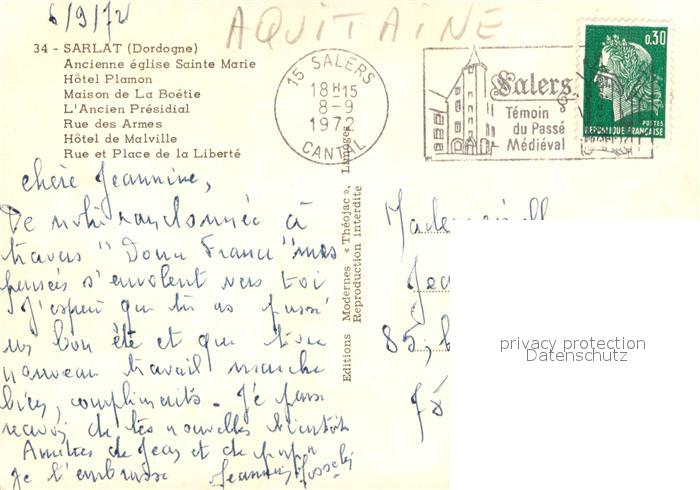 6/9/72
AQUITAINE
34 - SARLAT (Dordogne)
Ancienne église Sainte Marie
Hôtel Plamon
Maison de La Boétie
L'Ancien Présidial
Rue des Armes
Hôtel de Malville
Rue et Place de la Liberté
15 SALERS
18H15
8-9
1972
CANTAL
Salers
Témoin
du Passé
Médiéval
0,30
POSTES
REPUBLIQUE FRANÇAISE
chère Jeannine,
De notre randonnée à
travers "Doux France" mes
pensées s'envolent vers toi
J'espère que tu as passé
un bon été et que ton
nouveau travail marche
bien, compliments. Je pense
recevoir de tes nouvelles bientôt
Amitiés de Jean et de
Je t'embrasse
Editions Modernes « Théojac », Limoges
Reproduction interdite
Mademoiselle
85,
privacy protection
Datenschutz